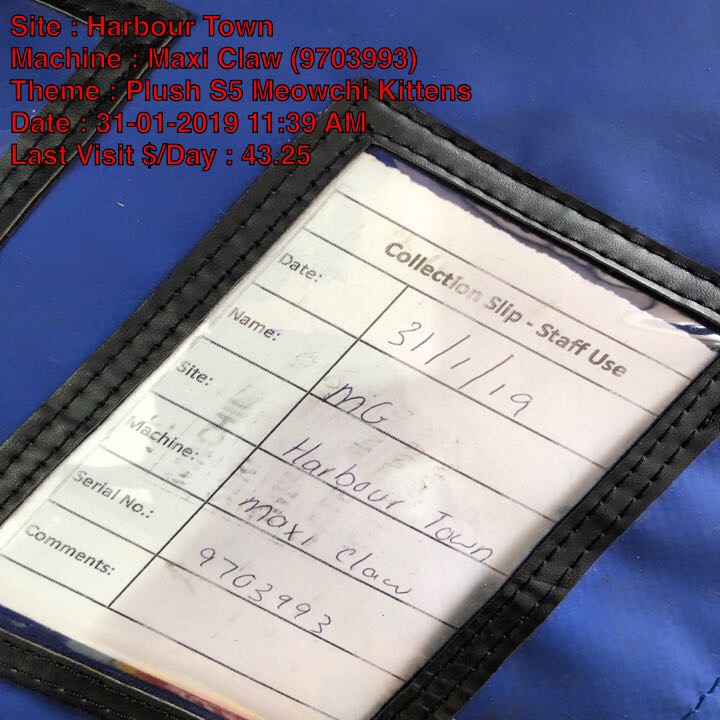 Site : Harbour Town
Machine : Maxi Claw (9703993)
Theme : Plush S5 Meowchi Kittens
Date : 31-01-2019 11:39 AM
Last Visit $/Day : 43.25
Collection Slip - Staff Use
Date: 31/1/19
Name: MG
Site: Harbour Town
Machine: Maxi Claw
Serial No.: 9703993
Comments: